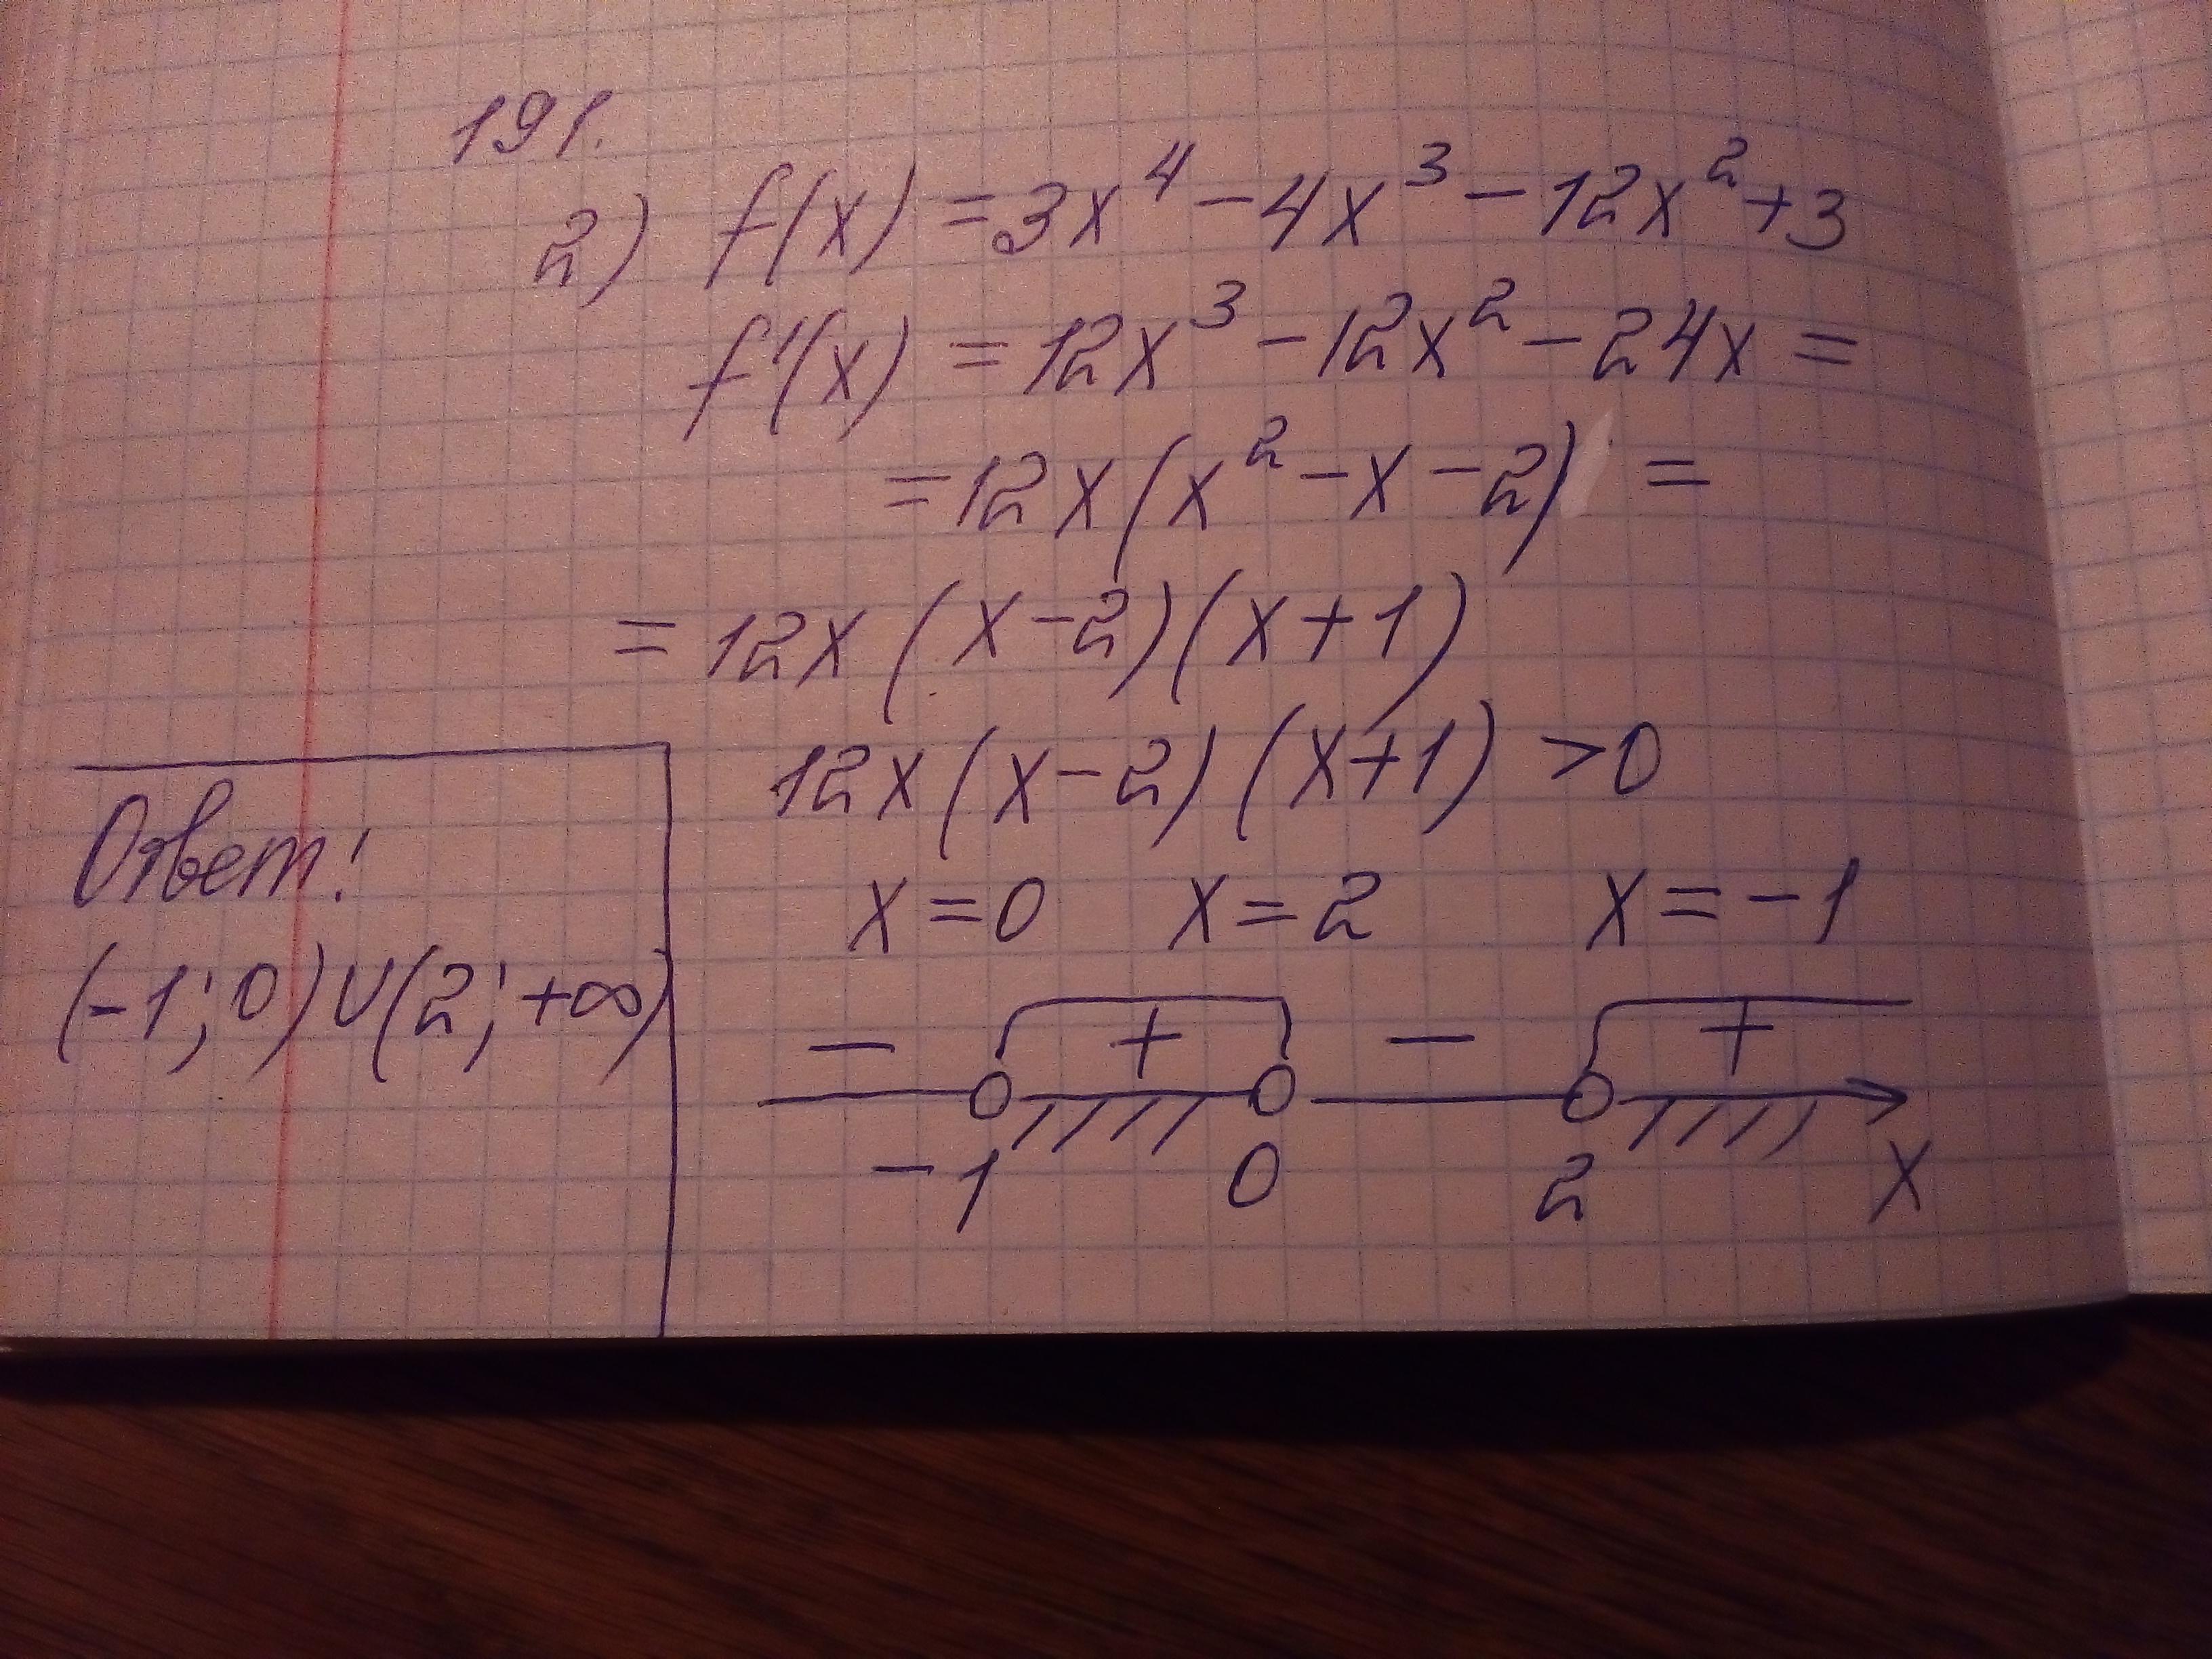 191.
2) f(x) = 3x⁴ - 4x³ - 12x² + 3
f'(x) = 12x³ - 12x² - 24x =
= 12x(x² - x - 2) =
= 12x(x - 2)(x + 1)
12x(x - 2)(x + 1) > 0
x = 0 x = 2 x = -1
- + - +
-1 0 2 x
Ответ:
(-1; 0) ∪ (2; +∞)